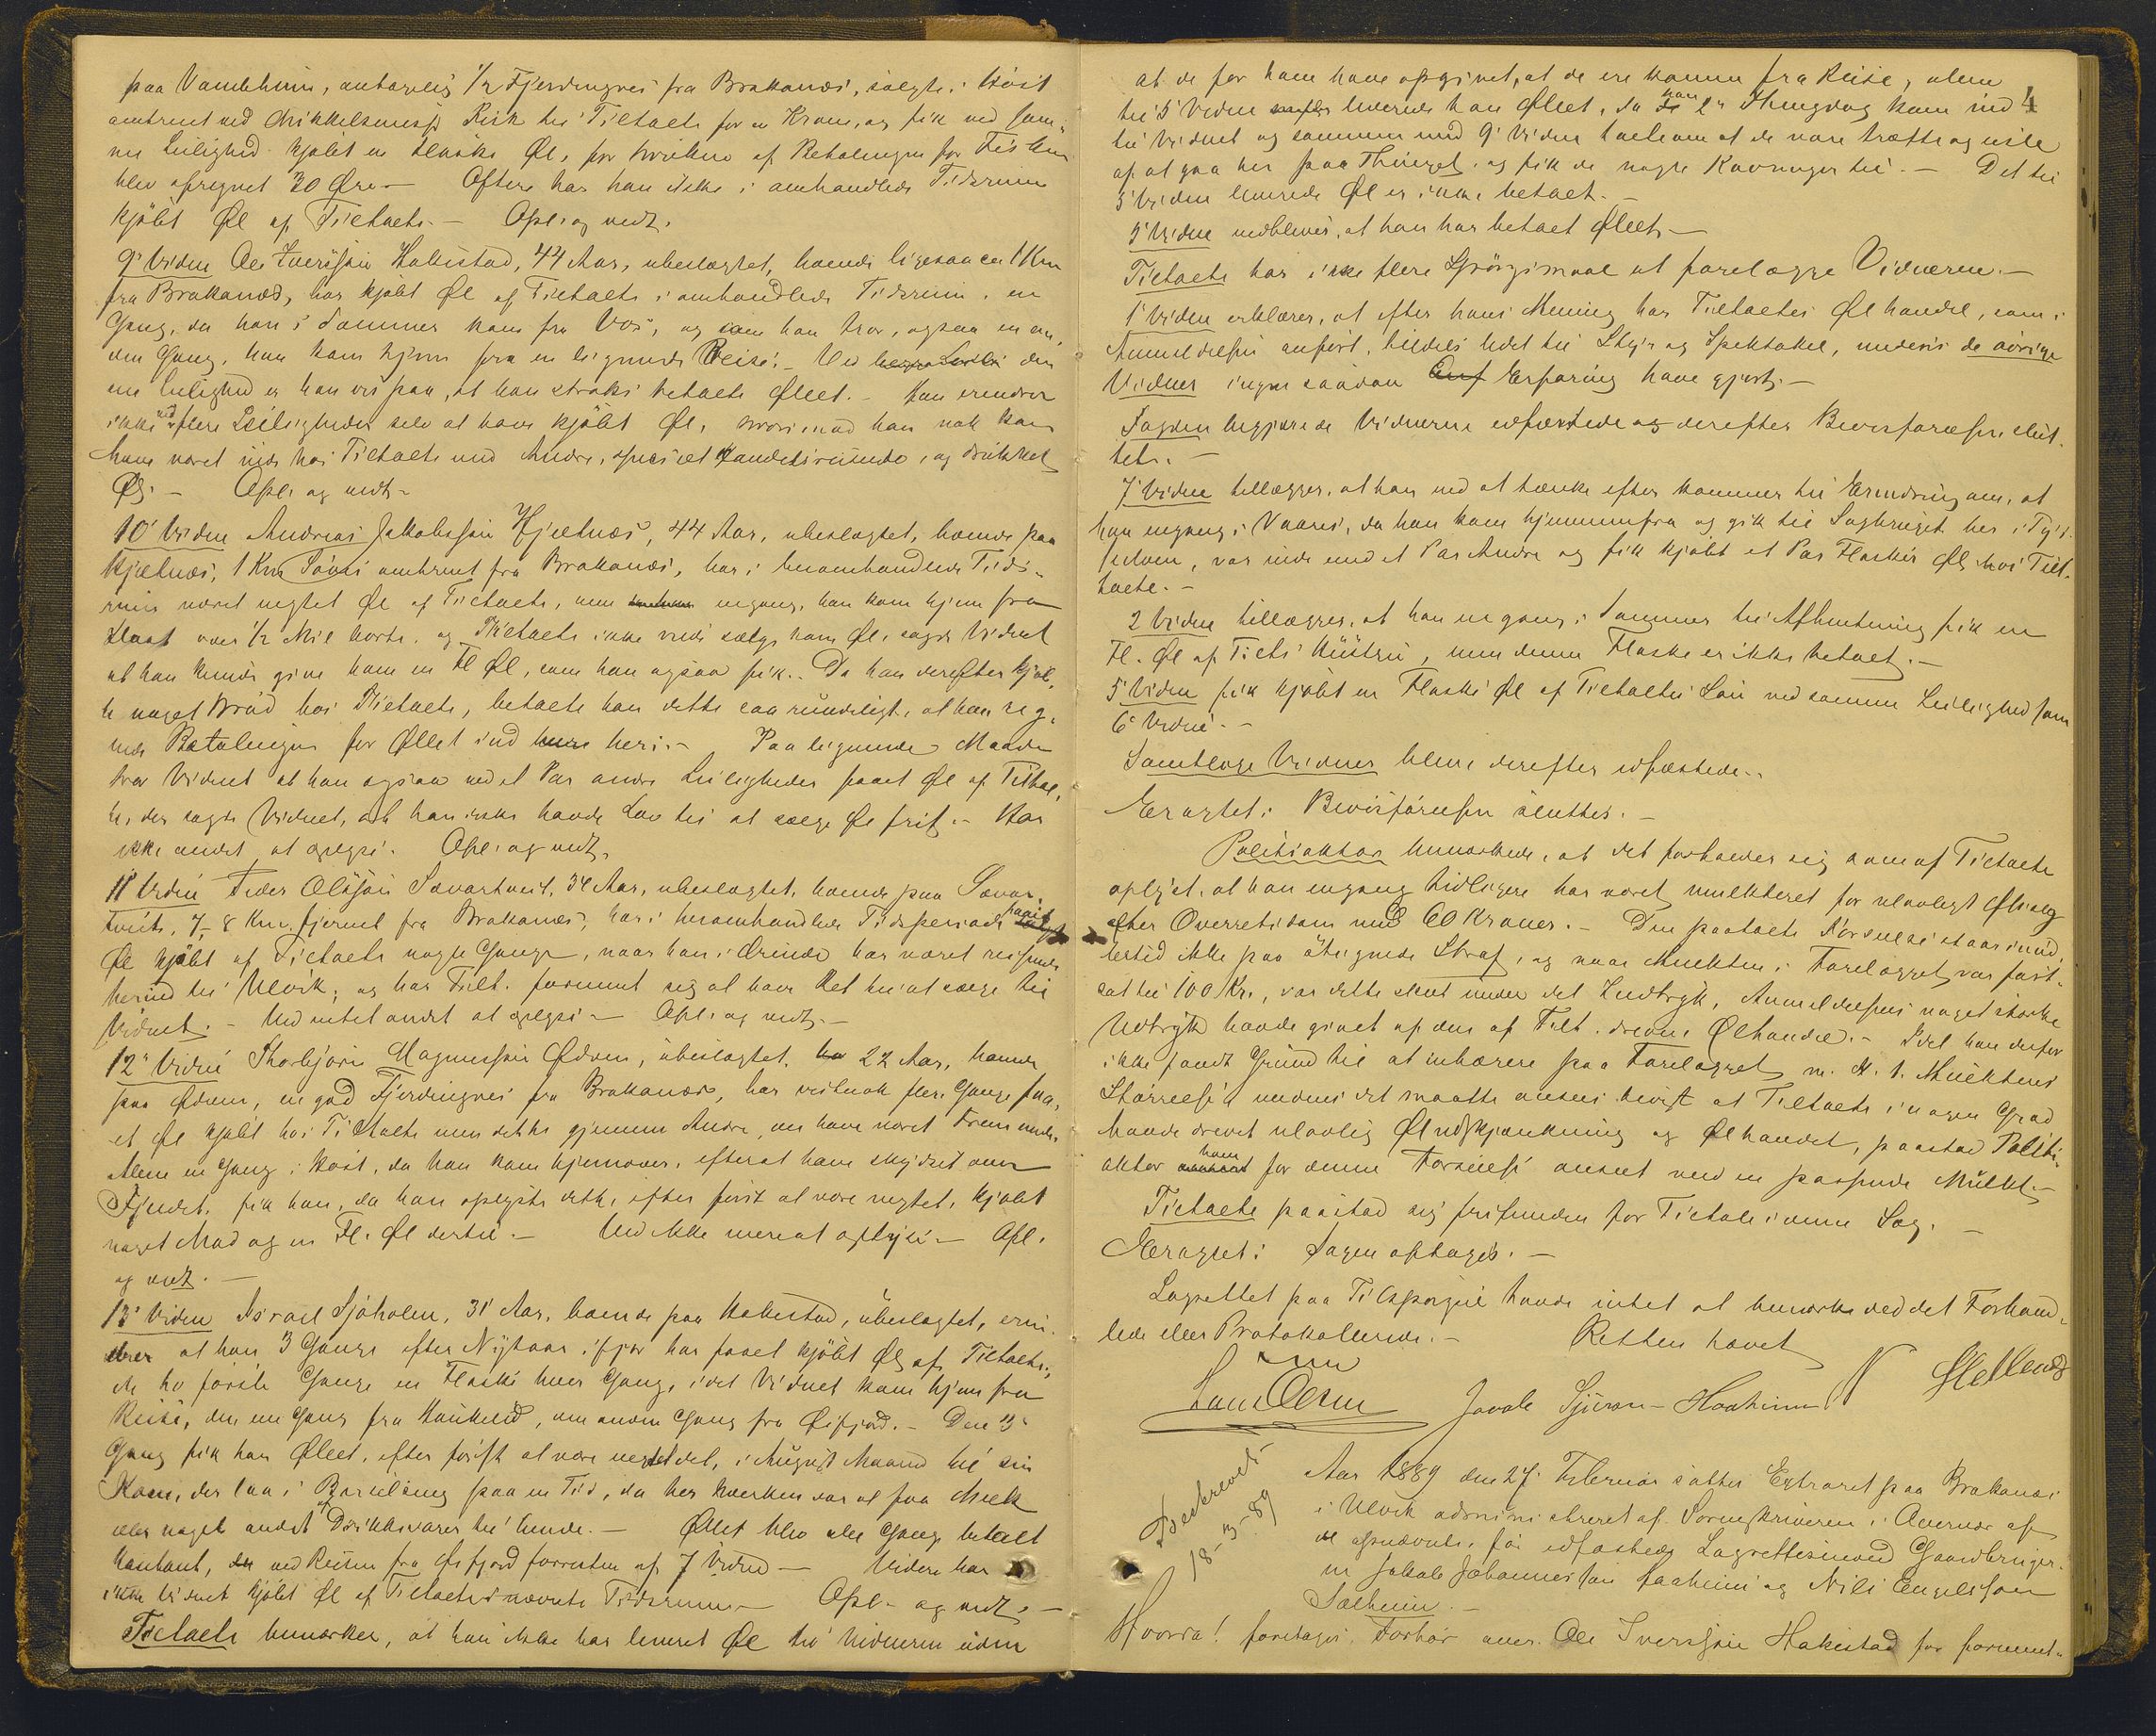 paa Vambheim, antagelig 1/2 Fjerdingvei fra Brakanæs, solgte i Höst
omtrent ved Mikkelsmess Fisk til Tiltalte for en Krone, og fik ved sam-
me Leilighed kjöbt en Flaske Øl, for hvilken af Betalingen for Fisken
blev afregnet 30 Øre. — Oftere har han ikke i omhandlede Tidsrum
kjöbt Øl af Tiltalte. — Opl. og vedt.
9' Vidne Ole Iversson Hakestad, 44 Aar, ubeslægtet, boende ligesaa ca 1 Km
fra Brakanæs, har kjöbt Øl af Tiltalte i omhandlede Tidsrum, en
Gang, da han i Sommer kom fra Vos, og som han tror, ogsaa en an-
den Gang, han kom hjem fra en lignende Reise. — Ved den
ene Leilighed er han vis paa, at han straks betalte Øllet. — Han erindrer
ikke ved flere Leiligheder selv at have kjöbt Øl, hvorimod han nok kan
have været inde hos Tiltalte med Andre, specielt Handelsreisende, og drukket
Øl. — Opl. og vedt. —
10' Vidne Andreas Jakobsson Hjeltnæs, 44 Aar, ubeslægtet, boende paa
Hjeltnæs, 1 Km Söveis omtrent fra Brakanæs, har i heromhandlede Tids-
rum været negtet Øl af Tiltalte, men engang, han kom hjem fra
Slaat over 1/2 Mil borte, og Tiltalte ikke vilde sælge ham Øl, sagde Vidnet
at han kunde give ham en Fl Øl, som han ogsaa fik. Da han derefter kjöb-
te noget Bröd hos Tiltalte, betalte han dette saa rundeligt, at han reg-
nede Betalingen for Øllet ind heri. — Paa lignende Maade
tror Vidnet at han ogsaa ved et Par andre Leiligheder faaet Øl af Tiltal-
te, der sagde Vidnet, at han ikke havde Lov til at sælge Øl frit. — Har
ikke andet at oplyse. Opl. og vedt.
11' Vidne Peder Olsson Sævartveit, 34 Aar, ubeslægtet, boende paa Sævar-
tveit, 7-8 Km. fjernet fra Brakanæs, har i heromhandlede Tidsperiode faaet
Øl kjöbt af Tiltalte nogle Gange, naar han i Ærinde har været reisende
herind til Ulvik, og har Tilt. forment sig at have Ret til at sælge til
Vidnet. — Ved intet andet at oplyse. — Opl. og vedt. —
12' Vidne Thorbjörn Magnusson Ødven, ubeslægtet, 22 Aar, boende
paa Ødven, en god Fjerdingvei fra Brakanæs, har vistnok flere Gange faa-
et Øl kjöbt hos Tiltalte men dette gjennem Andre, som have været Fremmede.
Alene en Gang i Höst, da han kom hjemover, efterat have skydset over
Fjeldet, fik han, da han oplyste dette, efter först at være negtet, kjöbt
noget Mad og en Fl. Øl dertil. — Ved ikke mere at oplyse. — Opl.
og vedt. —
13' Vidne Israel Sjöholm, 31 Aar, boende paa Hakestad, ubeslægtet, erin-
drer at han 3 Gange efter Nytaar ifjor har faaet kjöbt Øl af Tiltalte,
de to förste Gange en Flaske hver Gang, idet Vidnet kom hjem fra
Reise, den ene Gang fra Haukelid, den anden Gang fra Øifjord. — Den 3'
Gang fik han Øllet, efter först at være negtet det, i August Maaned til sin
Kone, der laa i Barselseng paa en Tid, da her hverken var at faa Melk
eller noget andet af Drikkevarer til hende. — Øllet blev alle Gange betalt
kontant, ved Reisen fra Øifjord forresten af 7 Vidne. — Videre har
ikke Vidnet kjöbt Øl af Tiltalte i nævnte Tidsrum. — Opl. og vedt. —
Tiltalte bemærker, at han ikke har leveret Øl til Vidnerne uden
at de for ham have opgivet, at de ere komne fra Reise, alene
til 5' Vidne leverede han Øllet, da han 2' Thingdag kom ind 4
til Vidnet og sammen med 9' Vidne talte om at de vare trætte og uste
af at gaa her paa Thinget, og fik da nogle Kavringer til. — Det til
5' Vidne leverede Øl er ikke betalt. —
5' Vidne vedblever, at han har betalt Øllet. —
Tiltalte har ikke flere Spörgsmaal at forelægge Vidnerne. —
1' Vidne erklærer, at efter hans Mening har Tiltaltes Ølhandel, som i
Anmeldelsen anfört, tildels ledet til Støi og Spektakel, medens de övrige
Vidner ingen saadan Erfaring have gjort. —
Sagsen begjærede Vidnerne edfæstede og derefter Bevisförelsen slut-
tet. —
7' Vidne tillægger, at han ved at tænke efter kommer til Erindring om, at
han engang i Vaares, da han kom hjemmenfra og gik til Sagbruget her i Tys-
sedven, var inde med et Par Andre og fik kjöbt et Par Flasker Øl hos Til-
talte. —
2' Vidne tillægger, at han en gang i Sommer til Afhentning fik en
Fl. Øl af Tilts Hustru, men denne Flaske er ikke betalt. —
5' Vidne fik kjöbt en Flaske Øl af Tiltaltes Sön ved samme Leilighed som
6' Vidne. —
Samtlige Vidner bleve derefter edfæstede. —
Eragtet: Bevisförelsen sluttes. —
Politiaktor bemærkede, at det forholder sig som af Tiltalte
oplyst, at han engang tidligere har været mulkteret for ulovligt Ølsalg
efter Overretsdom med 60 Kroner. — Den paatalte Forseelse staar imid-
lertid ikke paa ötegnede Straf, og naar Mulkten i Forelægget var fast-
sat til 100 Kr., var dette skeet under det Indtryk, Anmeldelsens noget stærke
Udtryk havde givet af den af Tilt. drevne Ølhandel. — Idet han derfor
ikke fandt Grund til at inhærere paa Forelægget m. H. t. Mulktens
Störrelse medens det maatte ansees bevist at Tiltalte i nogen Grad
havde drevet ulovlig Øludskjænkning og Ølhandel, paastod Politi-
aktor ham for denne Forseelse anseet med en passende Mulkt. —
Tiltalte paastod sig frifunden for Tiltale i denne Sag. —
Eragtet: Sagen optages. —
Lagrettet paa Tilspørgsel havde intet at bemærke ved det Forhand-
lede eller Protokollerede. — Retten hævet
Jacob Sjurson Haaheim N Hetlend
Beskrevet
18-3-89
Aar 1889 den 27. Februar sattes Extraret paa Brakanæs
i Ulvik administreret af Sorenskriveren i Overvær af
de opnævnte, før edfæstede Lagrettesmænd Gaardbruger-
ne Jakob Johannesson Haaheim og Nils Engelsson
Sælheim. —
Hvorda! foretages Forhør over Ole Iversson Hakestad for forment-